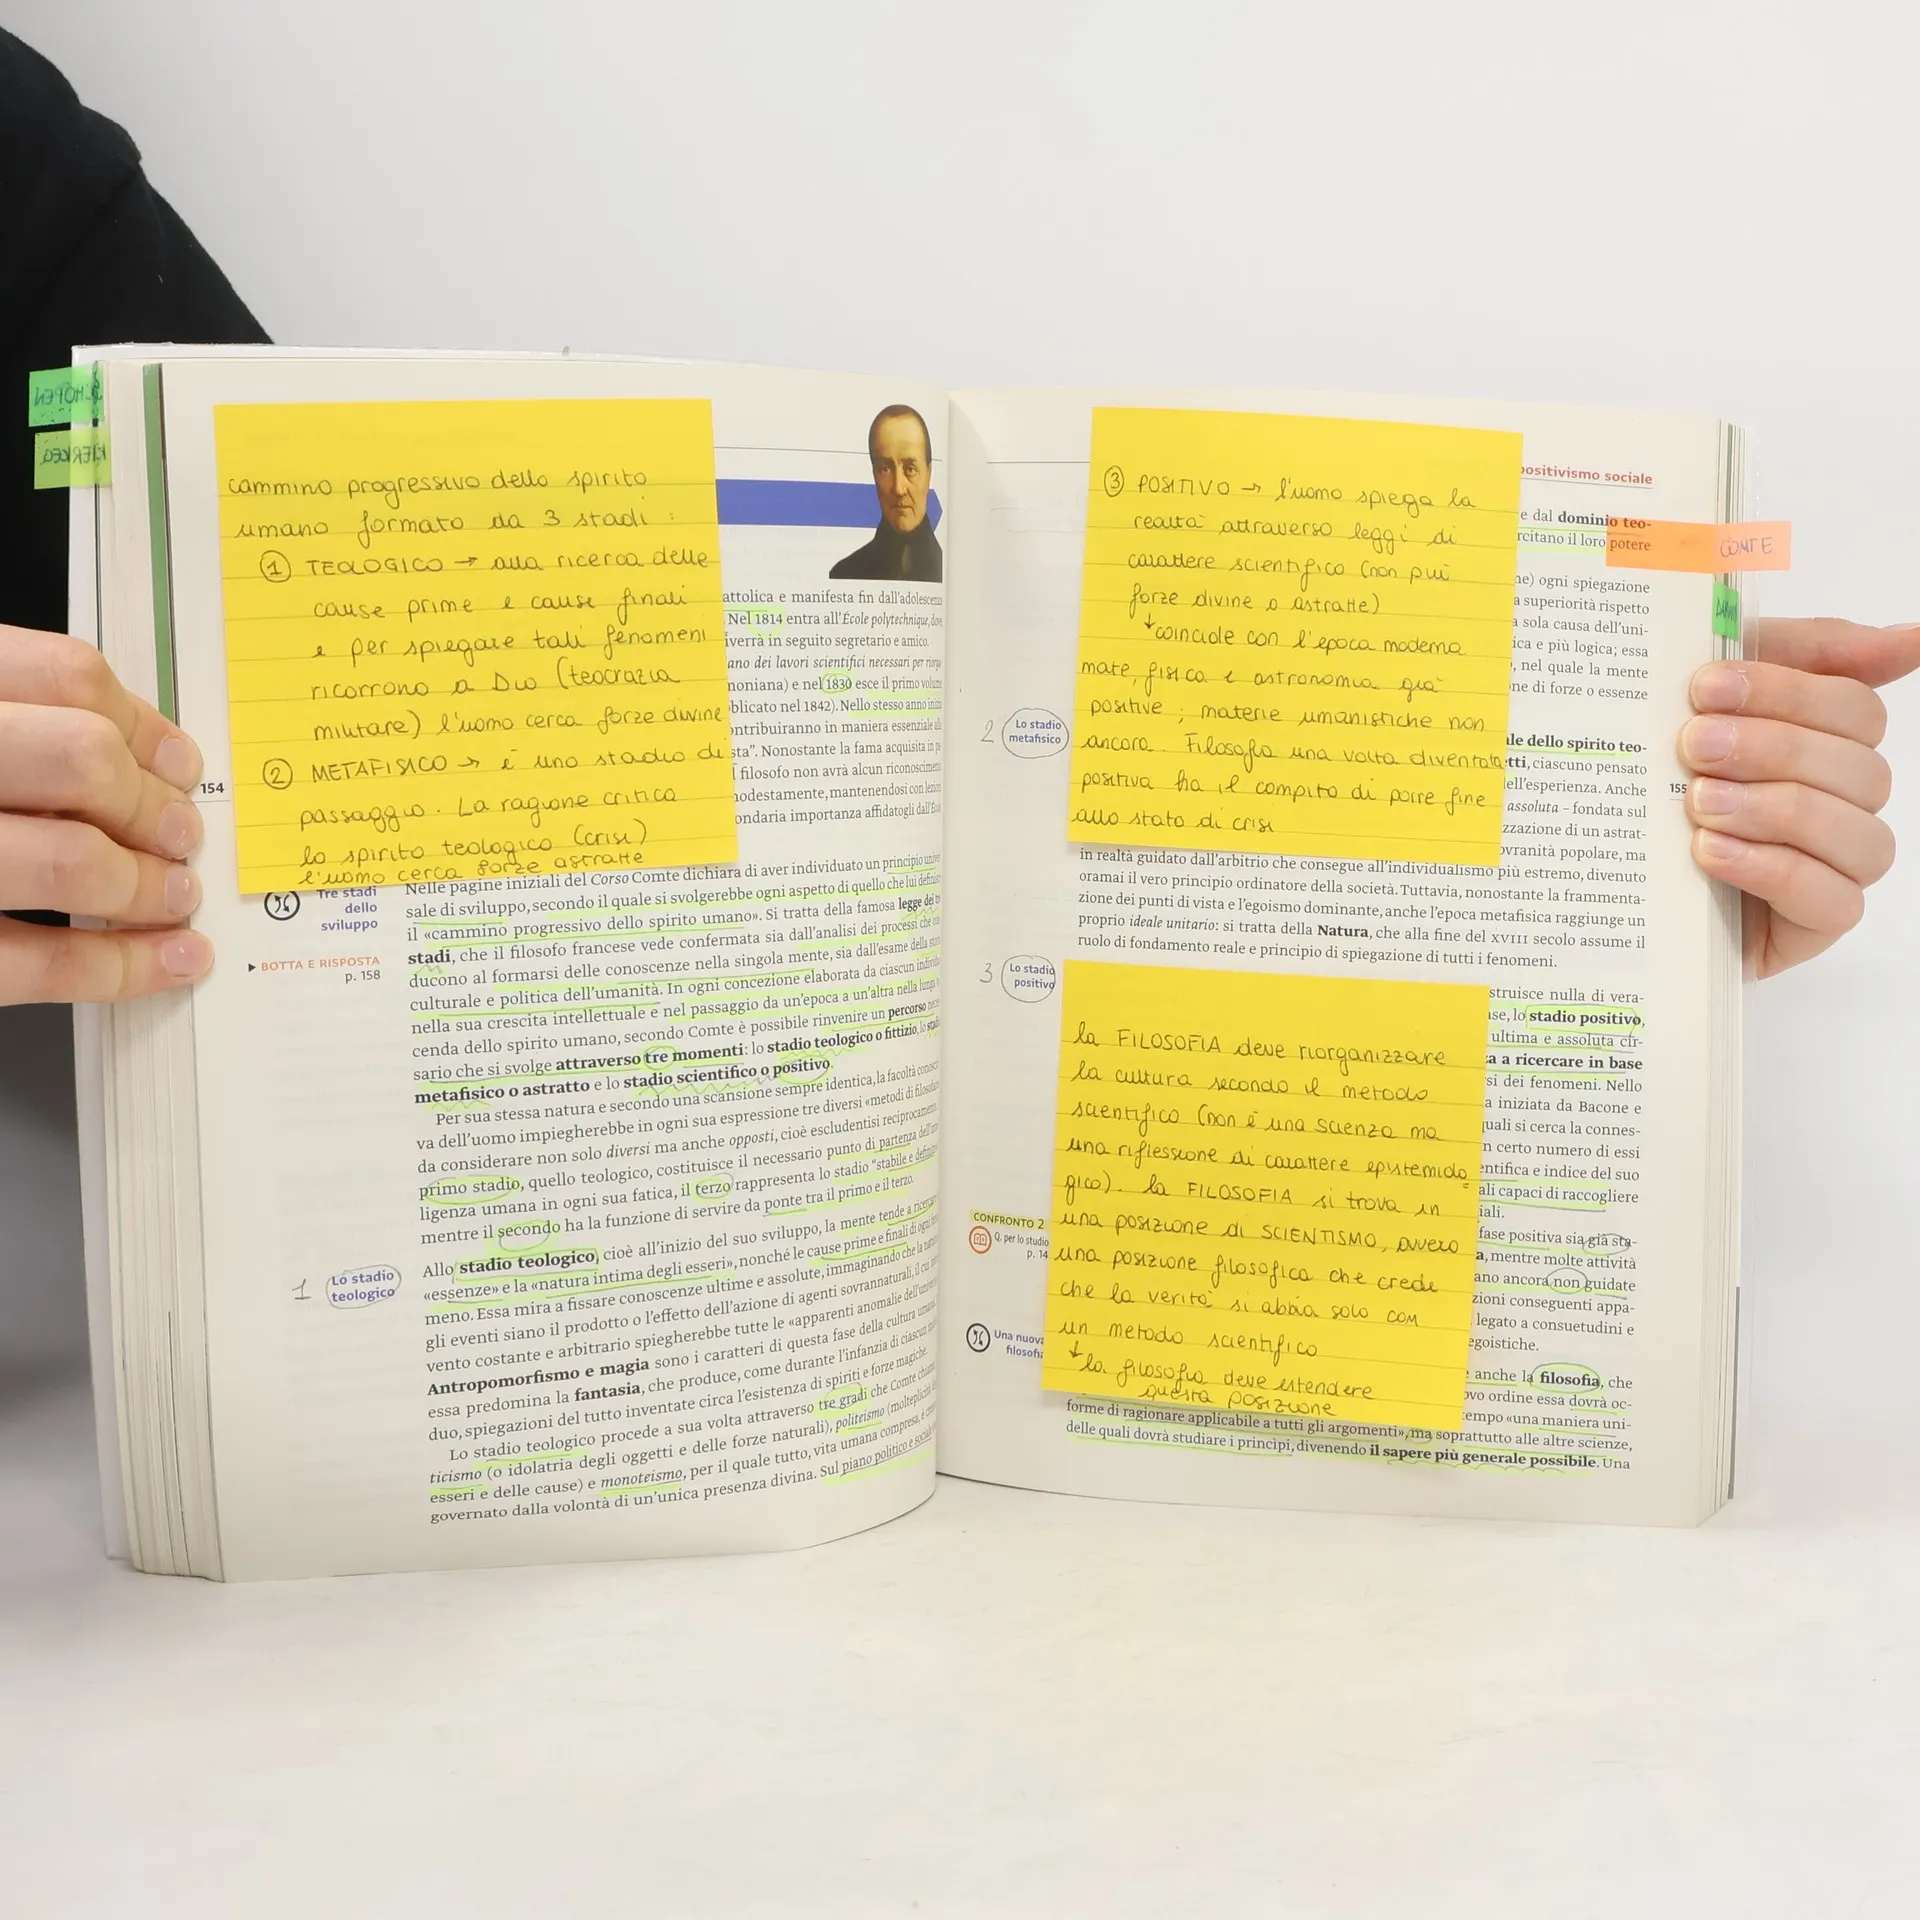 cammino progressivo dello spirito
umano formato da 3 stadi :
① TEOLOGICO → alla ricerca delle
cause prime e cause finali
e per spiegare tali fenomeni
ricorrono a Dio (teocrazia
militare) l'uomo cerca forze divine
② METAFISICO → è uno stadio di
passaggio. La ragione critica
lo spirito teologico (crisi)
l'uomo cerca forze astratte
attolica e manifesta fin dall'adolescenza
Nel 1814 entra all'École polytechnique, dove
iverrà in seguito segretario e amico.
ano dei lavori scientifici necessari per
noniana) e nel 1830 esce il primo volume
blicato nel 1842). Nello stesso anno
ontribuiranno in maniera essenziale
sta". Nonostante la fama acquisita in
filosofo non avrà alcun riconoscimento
modestamente, mantenendosi con lezioni
ondaria importanza affidatogli
154
Tre stadi
dello
sviluppo
▶ BOTTA E RISPOSTA
p. 158
Nelle pagine iniziali del Corso Comte dichiara di aver individuato un principio
sale di sviluppo, secondo il quale si svolgerebbe ogni aspetto di quello che lui
il «cammino progressivo dello spirito umano». Si tratta della famosa legge dei
stadi, che il filosofo francese vede confermata sia dall'analisi dei processi che
ducono al formarsi delle conoscenze nella singola mente, sia dall'esame della
culturale e politica dell'umanità. In ogni concezione elaborata da ciascun
nella sua crescita intellettuale e nel passaggio da un'epoca a un'altra nella lunga
cenda dello spirito umano, secondo Comte è possibile rinvenire un percorso
sario che si svolge attraverso tre momenti: lo stadio teologico o fittizio, lo
metafisico o astratto e lo stadio scientifico o positivo.
Per sua stessa natura e secondo una scansione sempre identica, la facoltà
va dell'uomo impiegherebbe in ogni sua espressione tre diversi «metodi di
da considerare non solo diversi ma anche opposti, cioè escludentisi reciprocamente.
primo stadio, quello teologico, costituisce il necessario punto di partenza
ligenza umana in ogni sua fatica, il terzo rappresenta lo stadio "stabile e
mentre il secondo ha la funzione di servire da ponte tra il primo e il terzo.
1 Lo stadio
teologico
Allo stadio teologico, cioè all'inizio del suo sviluppo, la mente tende a
«essenze» e la «natura intima degli esseri», nonché le cause prime e finali di
meno. Essa mira a fissare conoscenze ultime e assolute, immaginando che la
gli eventi siano il prodotto o l'effetto dell'azione di agenti sovrannaturali, il cui
vento costante e arbitrario spiegherebbe tutte le «apparenti anomalie
Antropomorfismo e magia sono i caratteri di questa fase della cultura umana.
essa predomina la fantasia, che produce, come durante l'infanzia di ciascun
duo, spiegazioni del tutto inventate circa l'esistenza di spiriti e forze magiche.
Lo stadio teologico procede a sua volta attraverso tre gradi che Comte
ticismo (o idolatria degli oggetti e delle forze naturali), politeismo
esseri e delle cause) e monoteismo, per il quale tutto, vita umana compresa, è
governato dalla volontà di un'unica presenza divina. Sul piano politico e
③ POSITIVO → l'uomo spiega la
realtà attraverso leggi di
carattere scientifico (non più
forze divine o astratte)
↓ coincide con l'epoca moderna
mate, fisica e astronomia già
positive ; materie umanistiche non
ancora. Filosofia una volta diventata
positiva ha il compito di porre fine
allo stato di crisi
positivismo sociale
e dal dominio teo-
rcitano il loro potere
COMTE
ne) ogni spiegazione
a superiorità rispetto
a sola causa dell'uni-
ica e più logica; essa
, nel quale la mente
ne di forze o essenze
2 Lo stadio
metafisico
ale dello spirito teo-
etti, ciascuno pensato
dell'esperienza. Anche
assoluta – fondata sul
zzazione di un astrat-
ovranità popolare, ma
155
in realtà guidato dall'arbitrio che consegue all'individualismo più estremo, divenuto
oramai il vero principio ordinatore della società. Tuttavia, nonostante la frammenta-
zione dei punti di vista e l'egoismo dominante, anche l'epoca metafisica raggiunge un
proprio ideale unitario: si tratta della Natura, che alla fine del XVIII secolo assume il
ruolo di fondamento reale e principio di spiegazione di tutti i fenomeni.
3 Lo stadio
positivo
struisce nulla di vera-
ase, lo stadio positivo,
ultima e assoluta cir-
a a ricercare in base
si dei fenomeni. Nello
a iniziata da Bacone e
quali si cerca la connes-
n certo numero di essi
entifica e indice del suo
ali capaci di raccogliere
iali.
fase positiva sia già sta-
a, mentre molte attività
ano ancora non guidate
zioni conseguenti appa-
legato a consuetudini e
egoistiche.
la FILOSOFIA deve riorganizzare
la cultura secondo il metodo
scientifico (non è una scienza ma
una riflessione di carattere epistemolo
gico). La FILOSOFIA si trova in
una posizione di SCIENTISMO, ovvero
una posizione filosofica che crede
che la verità si abbia solo con
un metodo scientifico
↓ la filosofia deve estendere
questa posizione
CONFRONTO 2
Q. per lo studio
p. 14
Una nuova
filosofia
anche la filosofia, che
ovo ordine essa dovrà oc-
tempo «una maniera uni-
forme di ragionare applicabile a tutti gli argomenti», ma soprattutto alle altre scienze,
delle quali dovrà studiare i principi, divenendo il sapere più generale possibile. Una